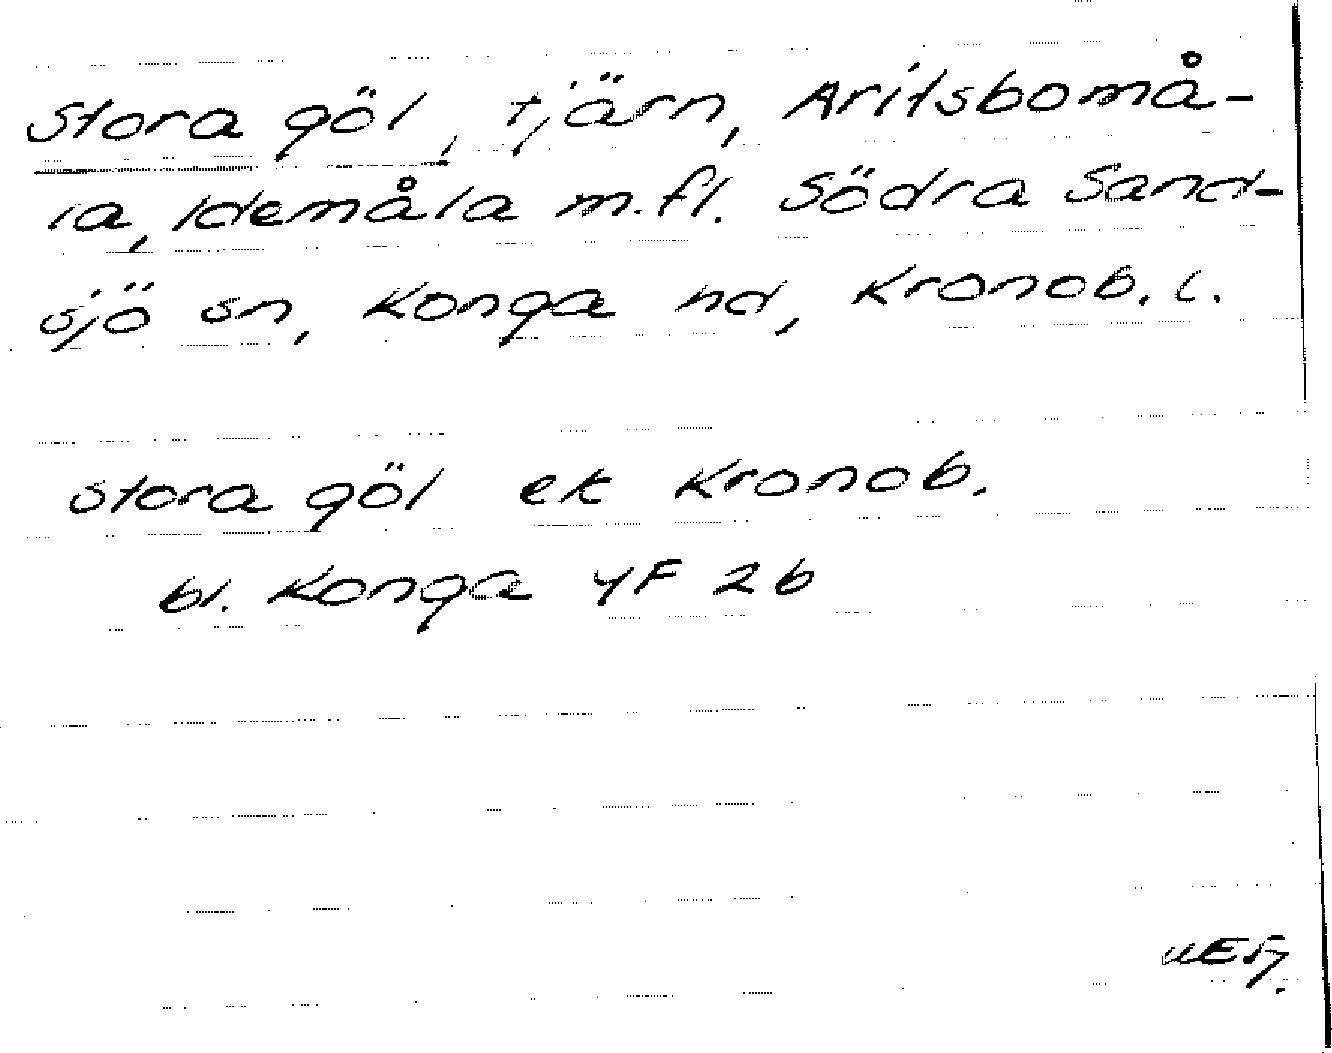 Stora göl, tjärn, Aritsbomå-
la, Idemåla m.fl. Södra Sand-
sjö sn, Konga hd, Kronob. l.
Stora göl ek Kronob.
bl. Konga 4F 2b